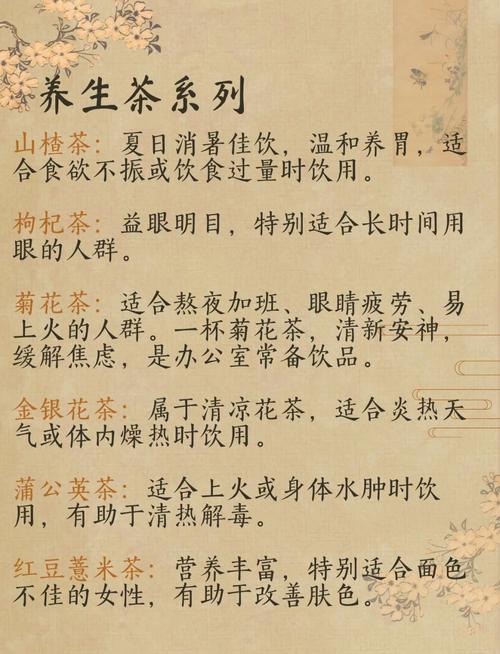 养生茶系列
山楂茶：夏日消暑佳饮，温和养胃，适
合食欲不振或饮食过量时饮用。
枸杞茶：益眼明目，特别适合长时间用
眼的人群。
菊花茶：适合熬夜加班、眼睛疲劳、易
上火的人群。一杯菊花茶，清新安神，
缓解焦虑，是办公室常备饮品。
金银花茶：属于清凉花茶，适合炎热天
气或体内燥热时饮用。
蒲公英茶：适合上火或身体水肿时饮
用，有助于清热解毒。
红豆薏米茶：营养丰富，特别适合面色
不佳的女性，有助于改善肤色。